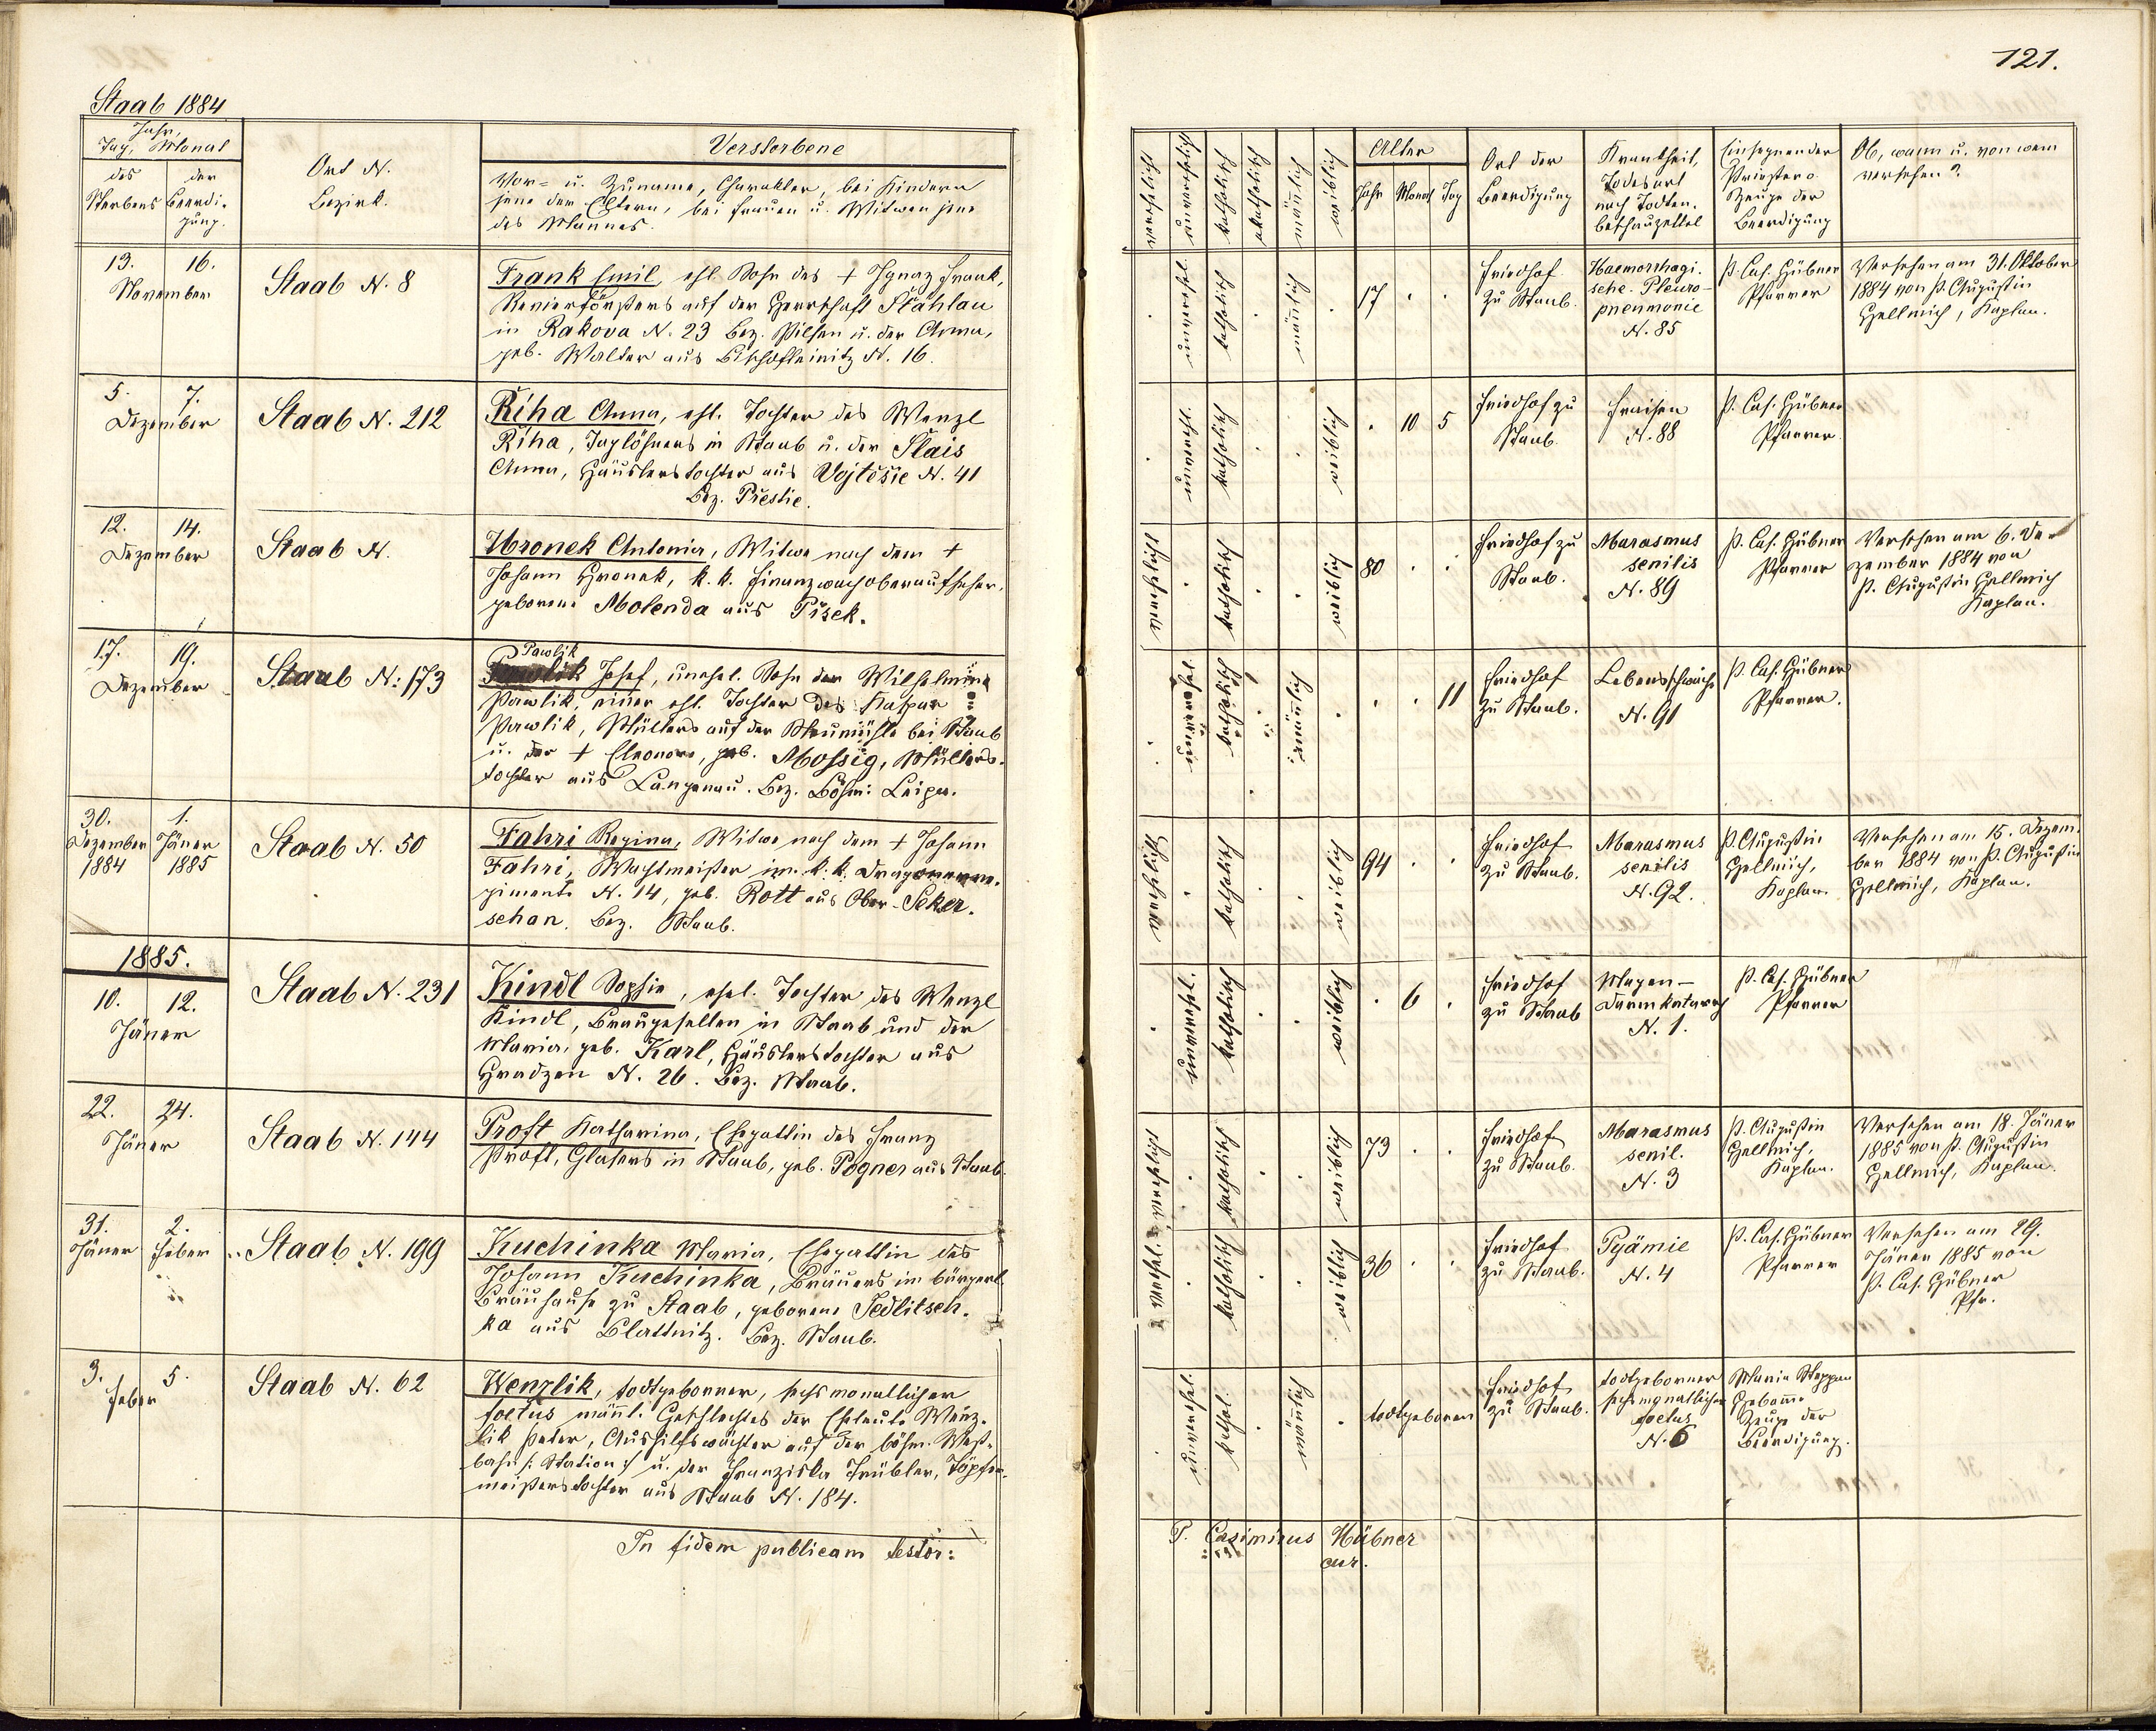 Staab 1884
121.
Jahr,
Tag, Monat
des Sterbens
der Beerdigung.
Ort N.
Bezirk.
Verstorbene
Vor- u. Zuname, Charakter, bei Kindern
jene der Eltern, bei Frauen u. Witwen jene
des Mannes.
verehelicht
unverehelicht
katholisch
akatholisch
männlich
weiblich
Alter
Jahr Monat Tag
Ort der
Beerdigung
Krankheit,
Todesart
nach Todten-
beschauzettel
Einsegnender
Priester o.
Zeuge der
Beerdigung
Ob, wann u. von wem
versehen?
13. 16.
November
Staab N. 8
Frank Emil, ehl. Sohn des + Ignaz Frank,
Revierförsters auf der Herrschaft Stáhlau
in Rakova N. 23 Bez. Pilsen u. der Anna,
geb. Walter aus Bischofteinitz N. 16.
unverehel.
katholisch
männlich
17 . .
Friedhof
zu Staab.
Haemorrhagi-
sche Pleuro-
pneumonie
N. 85
P. Cas. Hübner
Pfarrer
Versehen am 31. Oktober
1884 von P. Augustin
Hellmich, Kaplan.
5. 7.
Dezember
Staab N. 212
Řiha Anna, ehl. Tochter des Wenzl
Řiha, Taglöhners in Staab u. der Šlais
Anna, Häuslerstochter aus Vojtěšic N. 41
Bez. Přestic.
unverehel.
katholisch
weiblich
. 10 5
Friedhof zu
Staab.
Fraisen
N. 88
P. Cas. Hübner
Pfarrer.
12. 14.
Dezember
Staab N.
Hronek Antonia, Witwe nach dem +
Johann Hronek, k. k. Finanzwachoberaufseher,
geborene Molenda aus Pisek.
verehelicht
katholisch
weiblich
80 . .
Friedhof zu
Staab.
Marasmus
senilis
N. 89
P. Cas. Hübner
Pfarrer
Versehen am 6. De-
zember 1884 von
P. Augustin Hellmich
Kaplan.
17. 19.
Dezember
Staab N: 173
Pawlik
Josef, unehel. Sohn der Wilhelmine
Pawlik, einer ehl. Tochter des Kaspar
Pawlik, Müllers auf der Neumühle bei Staab
u. der + Eleonore, geb. Mossig, Müllers-
tochter aus Langenau. Bez. Böhm: Leipa.
unverehel.
katholisch
männlich
. . 11
Friedhof
zu Staab.
Lebensschwäche
N. 91
P. Cas. Hübner
Pfarrer.
30. 1.
Dezember Jäner
1884 1885
Staab N. 50
Fahri Regina, Witwe nach dem + Johann
Fahri, Wachtmeister im k. k. Dragonerre-
gimente N. 14, geb. Rott aus Ober-Seker-
schan. Bez. Staab.
verehelicht
katholisch
weiblich
94 . .
Friedhof
zu Staab.
Marasmus
senilis
N. 92.
P. Augustin
Hellmich,
Kaplan.
Versehen am 15. Dezem-
ber 1884 von P. Augustin
Hellmich, Kaplan.
1885.
10. 12.
Jäner
Staab N. 231
Kindl Sophie, ehel. Tochter des Wenzl
Kindl, Braugesellen in Staab und der
Maria, geb. Karl, Häuslerstochter aus
Hradzen N. 26. Bez. Staab.
unverehel.
katholisch
weiblich
. 6 .
Friedhof
zu Staab
Magen-
Darmkatarrh
N. 1.
P. Cas. Hübner
Pfarrer
22. 24.
Jäner
Staab N. 144
Proft Katharina, Ehegattin des Franz
Proft, Glasers in Staab, geb. Pogner aus Staab.
verehelicht
katholisch
weiblich
73 . .
Friedhof
zu Staab.
Marasmus
senil.
N. 3
P. Augustin
Hellmich,
Kaplan.
Versehen am 18. Jäner
1885 von P. Augustin
Hellmich, Kaplan.
31. 2.
Jäner Feber
Staab N. 199
Kuchinka Maria, Ehegattin des
Johann Kuchinka, Bräuers im bürgerl.
Bräuhause zu Staab, geborene Sedlitsch-
ka aus Blattnitz. Bez. Staab.
verehel.
katholisch
weiblich
36 . .
Friedhof
zu Staab.
Pyämie
N. 4
P. Cas. Hübner
Pfarrer
Versehen am 29.
Jäner 1885 von
P. Cas. Hübner
Pfr.
3. 5.
Feber
Staab N. 62
Wenzlik, todtgeborner, sechsmonatlicher
foetus männl. Geschlechtes der Eheleute Wenz-
lik Peter, Aushilfswächter auf der böhm. West-
bahn /: Station :/ u. der Franziska Trübler, Töpfer-
meisterstochter aus Staab N. 184.
unverehel.
kathol.
männlich
todtgeboren
Friedhof
zu Staab.
todtgeborner
sechsmonatlicher
foetus
N. 6
Maria
Hebamme
Zeuge der
Beerdigung.
In fidem publicam testor:
P. Casimirus Hübner
cur.